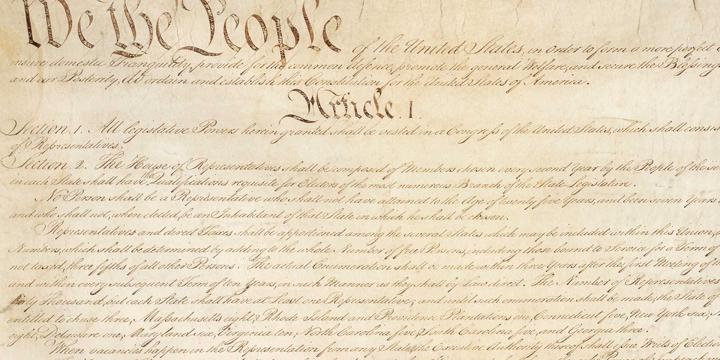 We the People of the United States, in Order to form a more perfect
insure domestic Tranquility, provide for the common defence, promote the general Welfare, and secure the Blessings
and our Posterity, do ordain and establish this Constitution for the United States of America.
Article. I.
Section. 1. All legislative Powers herein granted shall be vested in a Congress of the United States, which shall consist
of Representatives.
Section. 2. The House of Representatives shall be composed of Members chosen every second Year by the People of the
in each State shall have the Qualifications requisite for Electors of the most numerous Branch of the State Legislature.
No Person shall be a Representative who shall not have attained to the Age of twenty five Years, and been seven Years
and who shall not, when elected, be an Inhabitant of that State in which he shall be chosen.
Representatives and direct Taxes shall be apportioned among the several States which may be included within this Union,
Numbers, which shall be determined by adding to the whole Number of free Persons, including those bound to Service for a Term of
not taxed, three fifths of all other Persons. The actual Enumeration shall be made within three Years after the first Meeting of
and within every subsequent Term of ten Years, in such Manner as they shall by Law direct. The Number of Representatives
thirty Thousand, but each State shall have at Least one Representative; and until such enumeration shall be made, the State of
entitled to chuse three, Massachusetts eight, Rhode Island and Providence Plantations one, Connecticut five, New York six,
eight, Delaware one, Maryland six, Virginia ten, North Carolina five, South Carolina five, and Georgia three.
When vacancies happen in the Representation from any State, the Executive Authority thereof shall issue Writs of Election